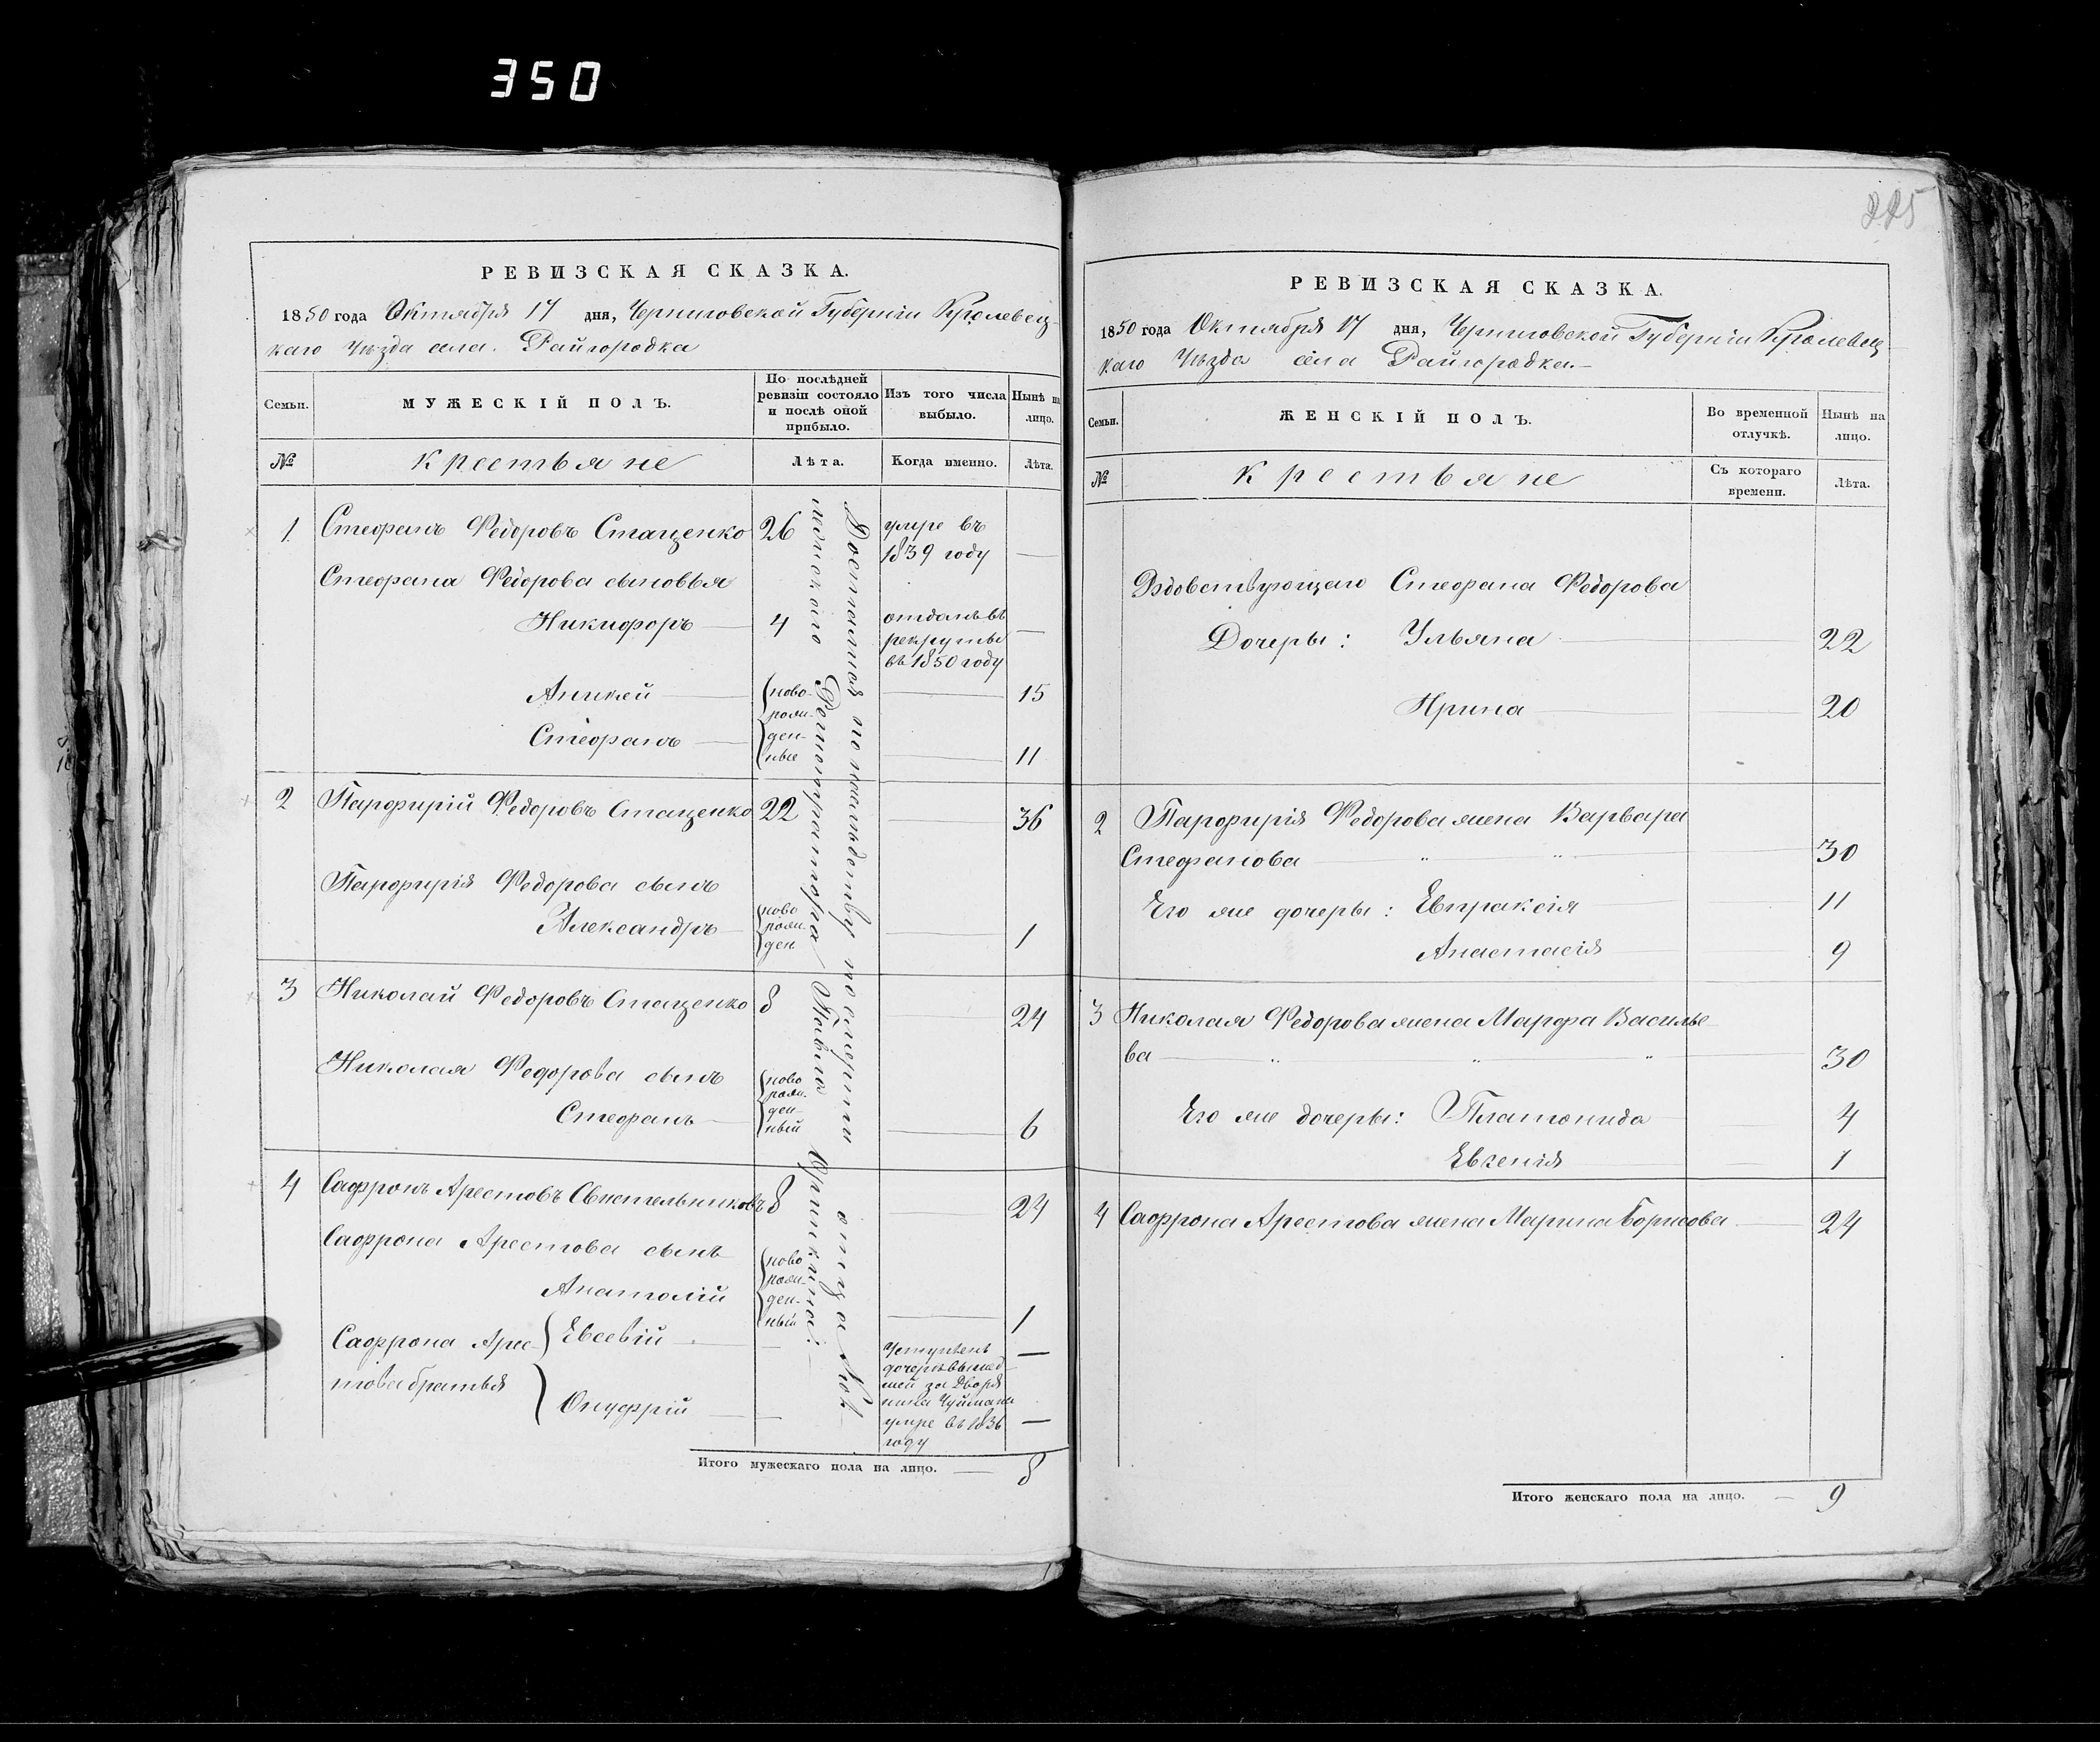 350
РЕВИЗСКАЯ СКАЗКА.
1850 года Октября 17 дня, Черниговской Губерніи Кролевец-
каго Уѣзда села Райгородка
Семьи.
МУЖЕСКІЙ ПОЛЪ.
По послѣдней ревизіи состояло и послѣ оной прибыло.
Изъ того числа выбыло.
Нынѣ на лицо.
№
Крестьяне
Лѣта.
Когда именно.
Лѣта.
1 Стефанъ Федоровъ Стаценко 26 умре въ
1839 году —
Стефана Федорова сыновья
Никифоръ — 4 отданъ въ
рекруты
въ 1850 году —
Аникей — ново- 15
рож-
Стефанъ — ден-
ные 11
2 Парфирій Федоровъ Стаценко 22 36
Парфирія Федорова сынъ
Александръ ново
рож-
ден 1
3 Николай Федоровъ Стаценко 8 24
Николая Федорова сынъ
Стефанъ ново
рож-
ден-
ный 6
4 Сафронъ Арестовъ Свистельниковъ 8 24
Сафрона Арестова сынъ
Анатолій ново
рож-
ден-
ный 1
Сафрона Арес- Евсевій — — уступленъ —
това братья дочери вышед-
шей за Дворя
нина
Онуфрій — — умре въ 1836 —
году
Доставшіяся по наслѣдству по смерти отца Кол-
лежскаго Регистратора Павла
Итого мужескаго пола на лицо. — 8
225
РЕВИЗСКАЯ СКАЗКА.
1850 года Октября 17 дня, Черниговской Губерніи Кролевец
каго Уѣзда села Райгородка.—
Семьи.
ЖЕНСКІЙ ПОЛЪ.
Во временной отлучкѣ.
Нынѣ на лицо.
№
Крестьяне
Съ котораго времени.
Лѣта.
Вдовствующаго Стефана Федорова
Дочеры: Ульяна 22
Ирина 20
2 Парфирія Федорова жена Варвара
Стефанова " " 30
Его же дочеры: Евпраксія 11
Анастасія 9
3 Николая Федорова жена Марфа Василье
ва " " " 30
Его же дочеры: Платонида 4
Евгенія 1
4 Сафрона Арестова жена Марина Борисова 24
Итого женскаго пола на лицо. — 9